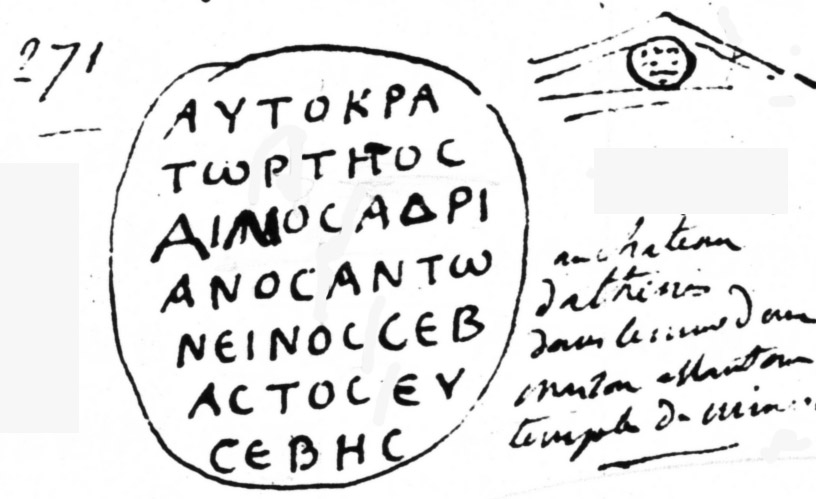 271
ΑΥΤΟΚΡΑ
ΤωΡΤΗΤΟC
ΑΝΟCΑΝΤω
ΝΕΙΝΟCCΕΒ
ΑCΤΟCΕΥ
CΕΒΗC
au chateau
dathenes
dans le mur d'une
maison
temple de